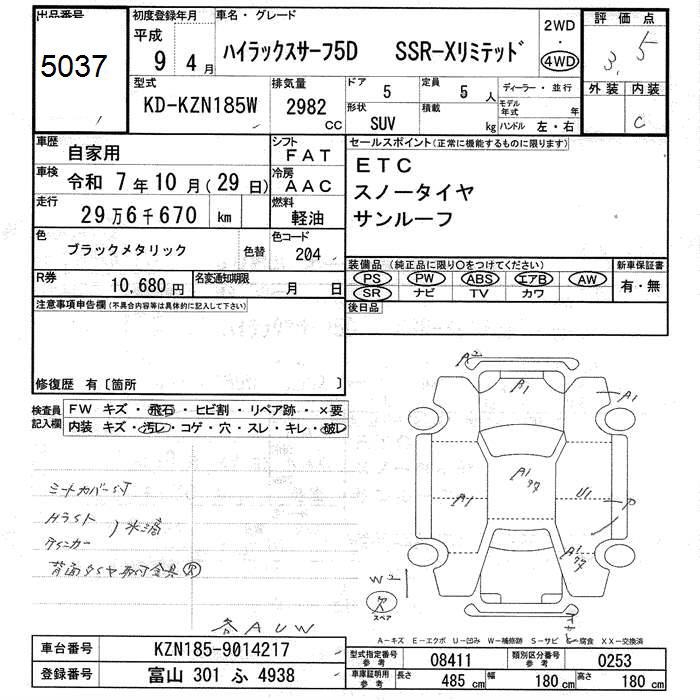 出品番号 初度登録年月 車名・グレード 評価点
5037 平成 9年 4月 ハイラックスサーフ5D SSR-Xリミテッド 2WD 4WD 3.5
型式 排気量 ドア 定員 ディーラー・並行 外装 内装
KD-KZN185W 2982 CC 5 5人 モデル年式 年 C
形状 SUV 積載 kg ハンドル 左・右
車歴 自家用 シフト FAT セールスポイント(正常に機能するものに限ります)
車検 令和 7年10月(29日) 冷房 AAC ETC
走行 29万6千670 km 燃料 軽油 スノータイヤ
サンルーフ
色 ブラックメタリック 色替 色コード 204
装備品 (純正品に限り○をつけてください) 新車保証書
R券 10,680円 名変通知期限 月 日 PS PW ABS エアB AW 有・無
SR ナビ TV カワ
注意事項申告欄(不具合内容等は具体的に記入して下さい) 後日品
修復歴 有〔箇所 〕
検査員記入欄 FW キズ・飛石・ヒビ割・リペア跡・×要
内装 キズ・汚レ・コゲ・穴・スレ・キレ・破レ
A2
A1
A1
シートカバーS.T
A1
A1
U1
P
Hライト
ウインカー
水滴
A1
背面タイヤ取付金具欠
W2
欠
スペア
各AUW
A-キズ E-エクボ U-凹み W-補修跡 S-サビ C-腐食 XX-交換済
車台番号 KZN185-9014217 型式指定番号 参考 08411 類別区分番号 参考 0253
登録番号 富山 301 ふ 4938 車庫証明用 参考 長さ 485 cm 幅 180 cm 高さ 180 cm